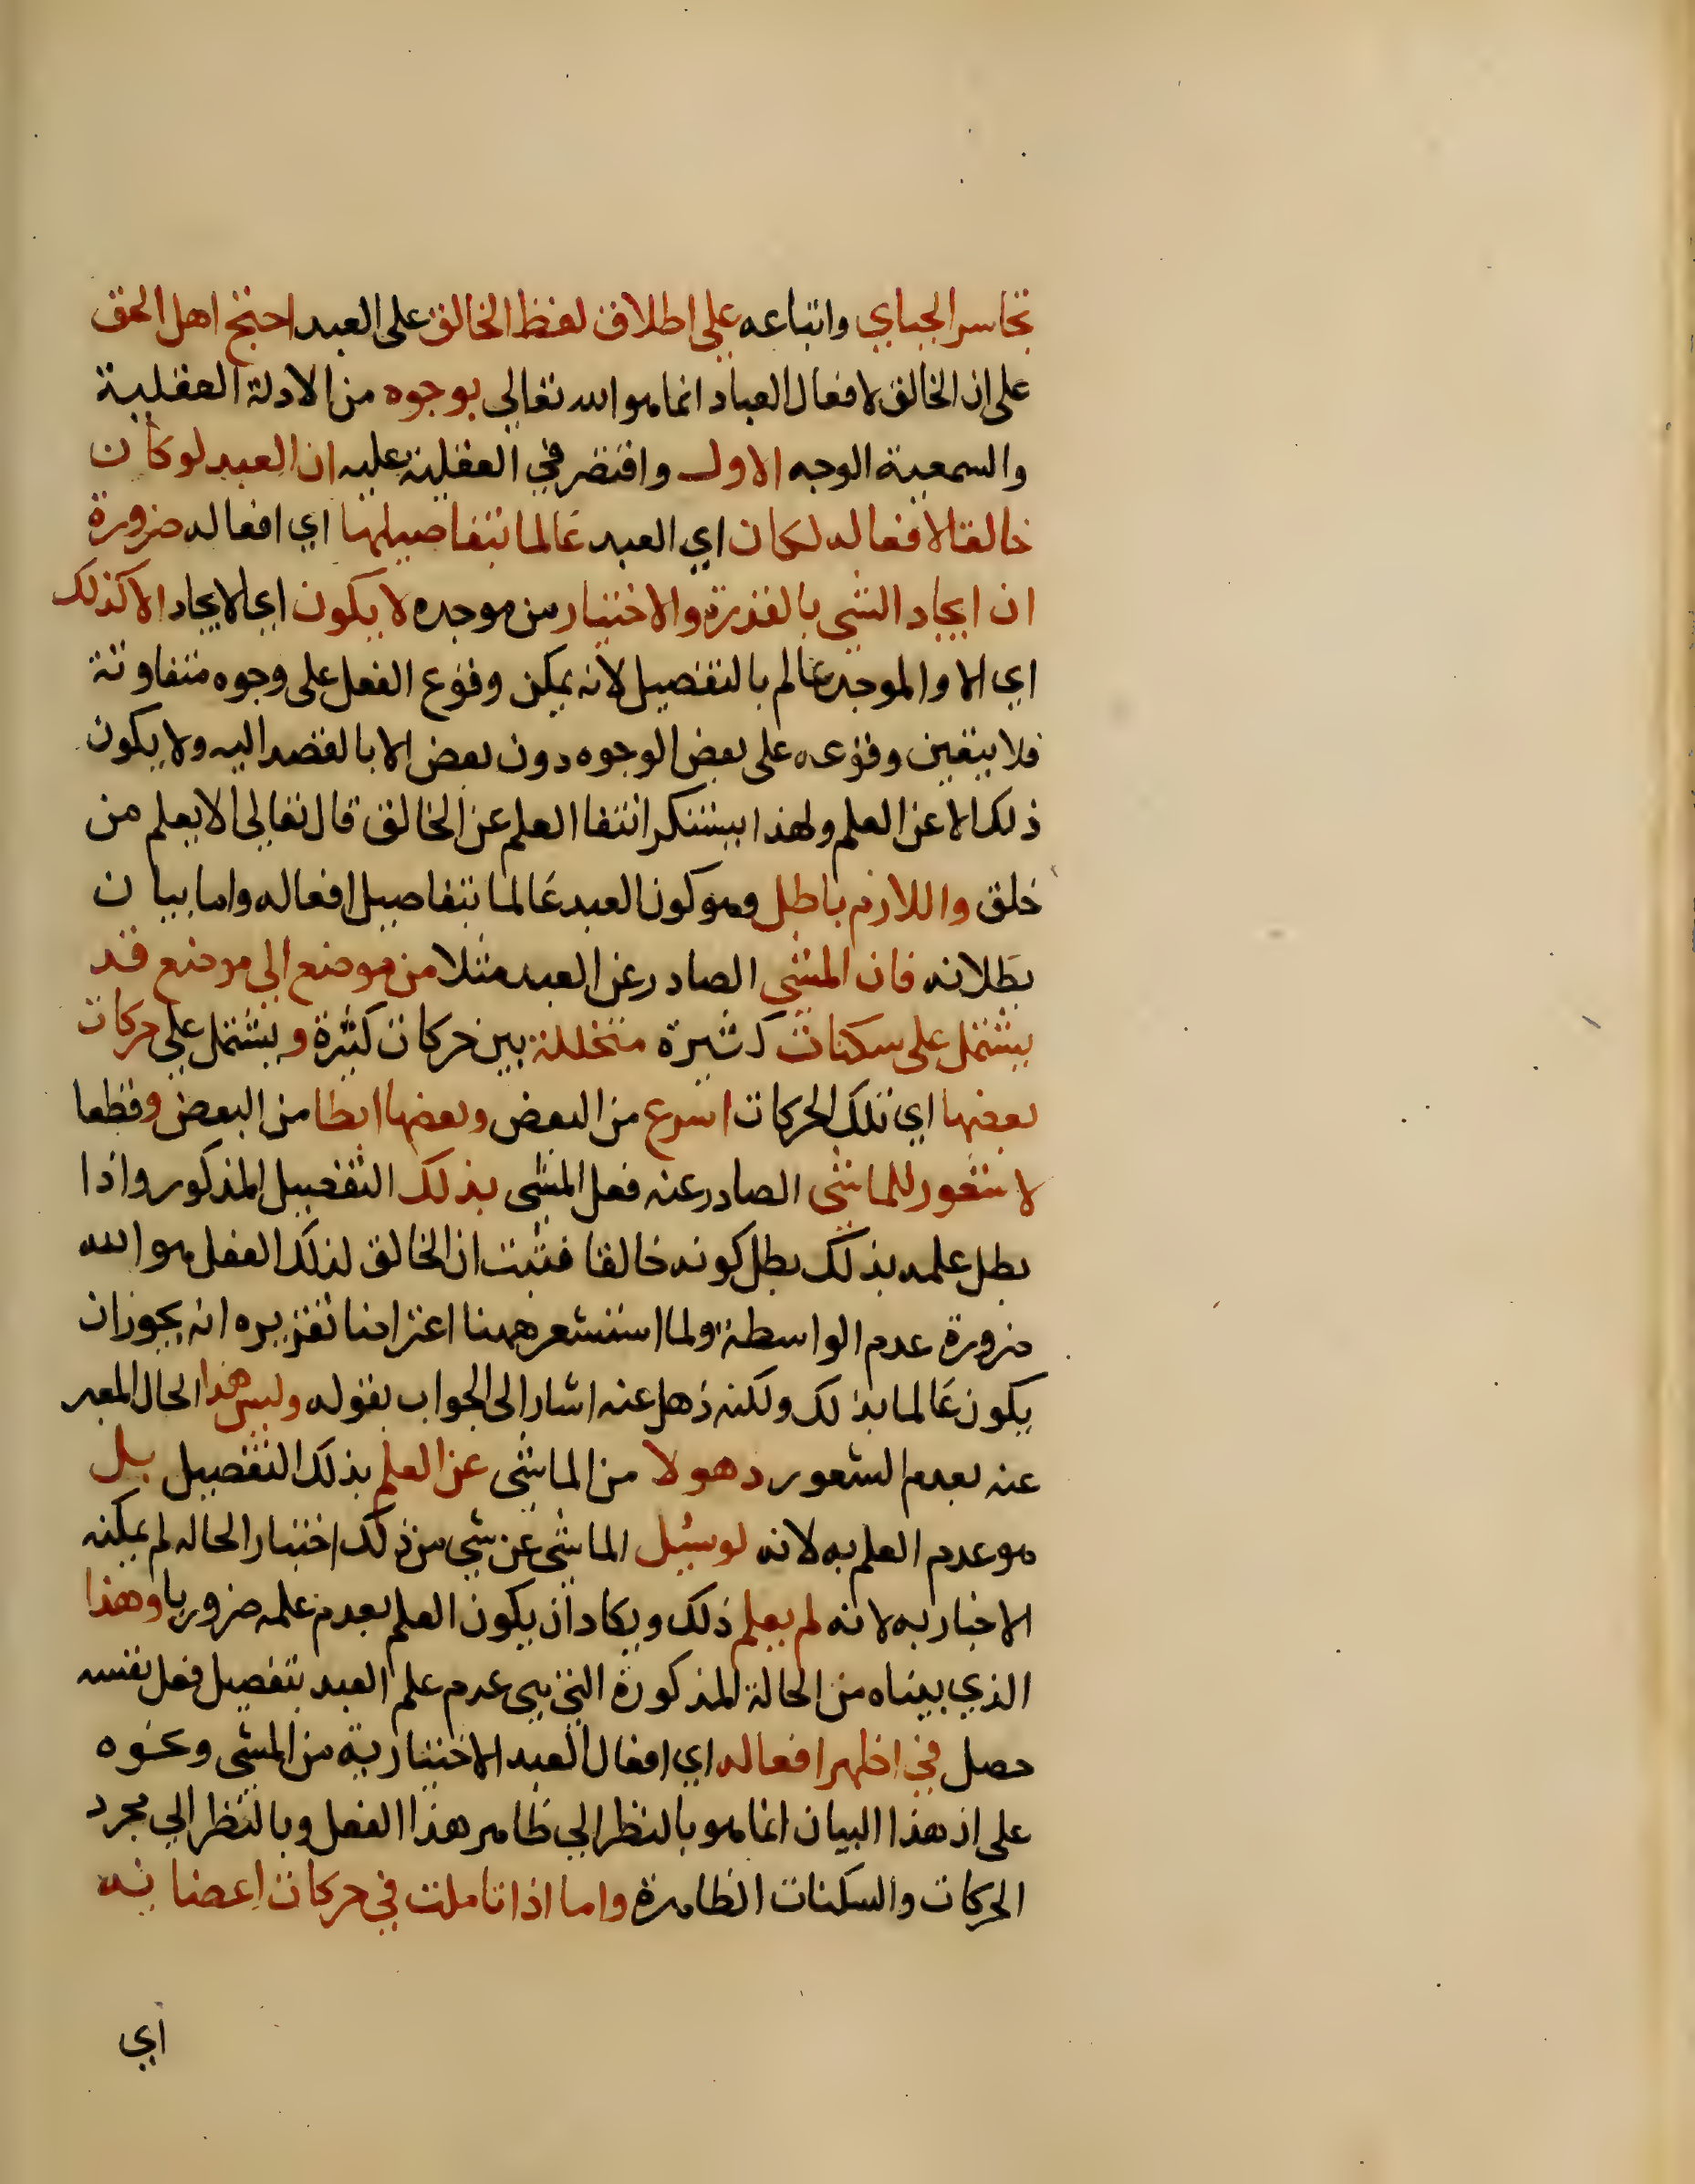 تجاسر الجباي واتباعه علي اطلاق لفظ الخالق على العبد احتج اهل الحق
على ان الخالق لافعال العباد انما هو الله تعالي بوجوه من الادلة العقلية
والسمعية الوجه الاول واقتصر في العقلية عليه ان العبد لو كان
خالقا لافعاله لكان اي العبد عالما بتفاصيلها اي افعاله ضرورة
ان ايجاد الشي بالقدرة والاختيار من موجده لا يكون اي الايجاد الا كذلك
اي الا والموجد عالم بالتفصيل لانه يمكن وقوع الفعل على وجوه متفاوتة
فلا يتعين وقوعه على بعض الوجوه دون بعض الا بالقصد اليه ولا يكون
ذلك الا عن العلم ولهذا يستنكر انتفا العلم عن الخالق قال تعالى الا يعلم من
خلق واللازم باطل وهو كون العبد عالما بتفاصيل افعاله واما بيان
بطلانه فان المشي الصادر عن العبد مثلا من موضع الي موضع قد
يشتمل على سكنات كثيرة متخللة بين حركات كثيرة ويشتمل علي حركات
بعضها اي تلك الحركات اسرع من البعض وبعضها ابطا من البعض وقطعا
لا شعور للماشي الصادر عنه فعل المشى بذلك التفصيل المذكور واذا
بطل علمه بذلك بطل كونه خالقا فثبت ان الخالق لذلك الفعل هو الله
ضرورة عدم الواسطة ولما استشعر ههنا اعتراضا تقريره انه يجوز ان
يكون عالما بذلك ولكنه ذهل عنه اشار الى الجواب بقوله وليس هذا الحال المعبر
عنه بعدم الشعور دهولا من الماشى عن العلم بذلك التفصيل بل
هو عدم العلم به لانه لو سيل الماشى عن شي من ذلك اختبار الحاله لم يمكنه
الاخبار به لانه لم يعلم ذلك ويكاد ان يكون العلم بعدم علمه ضروريا وهذا
الذي بيناه من الحالة المذكورة التي هي عدم علم العبد بتفصيل فعل نفسه
حصل في اظهر افعاله اي افعال العبد الاختيارية من المشى ونحوه
على ان هذا البيان انما هو بالنظر الي ظاهر هذا الفعل وبالنظر الي مجرد
الحركات والسكنات الظاهرة واما اذا تاملت في حركات اعضايه
اي